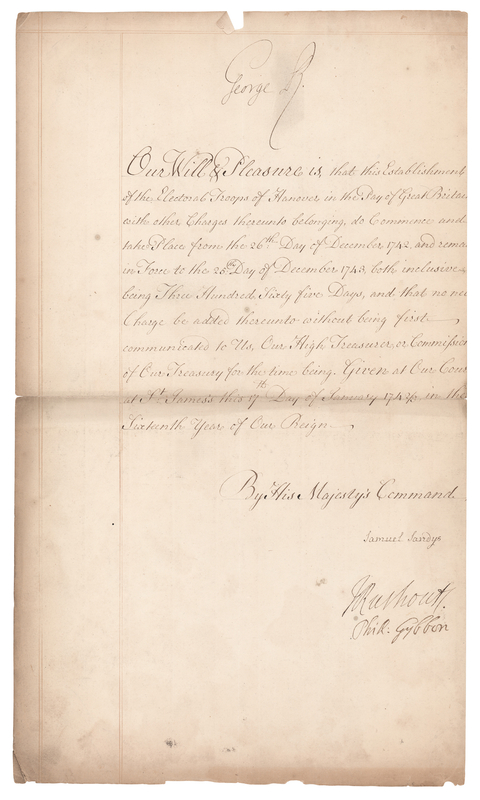 George R.
Our Will & Pleasure is, that this Establishment
of the Electoral Troops of Hanover in the Pay of Great Britai
with other Charges thereunto belonging, do Commence and
take Place from the 26th Day of December 1742, and remai
in Force to the 25th Day of December 1743, both inclusive
being Three Hundred Sixty five Days, and that no new
Charge be added thereunto without being first
communicated to Us, Our High Treasurer, or Commission
of Our Treasury for the time being. Given at Our Cour
at St. James's this 17th Day of January 1742/3 in the
Sixteenth Year of Our Reign
By His Majesty's Command
Samuel Sandys
J Rushout.
Phil: Gybbon